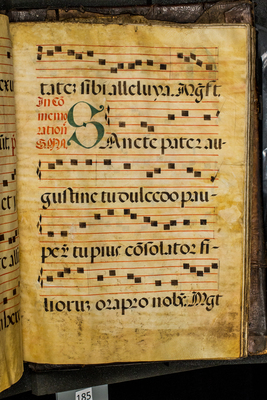 tate: sibi alleluya. Mgft.
In Cō
memo
ration
SAncte pater au-
gustine tu dulcedo pau-
perū tu pius cōsolator fi-
liorum ora pro nobꝭ. Mgt
185